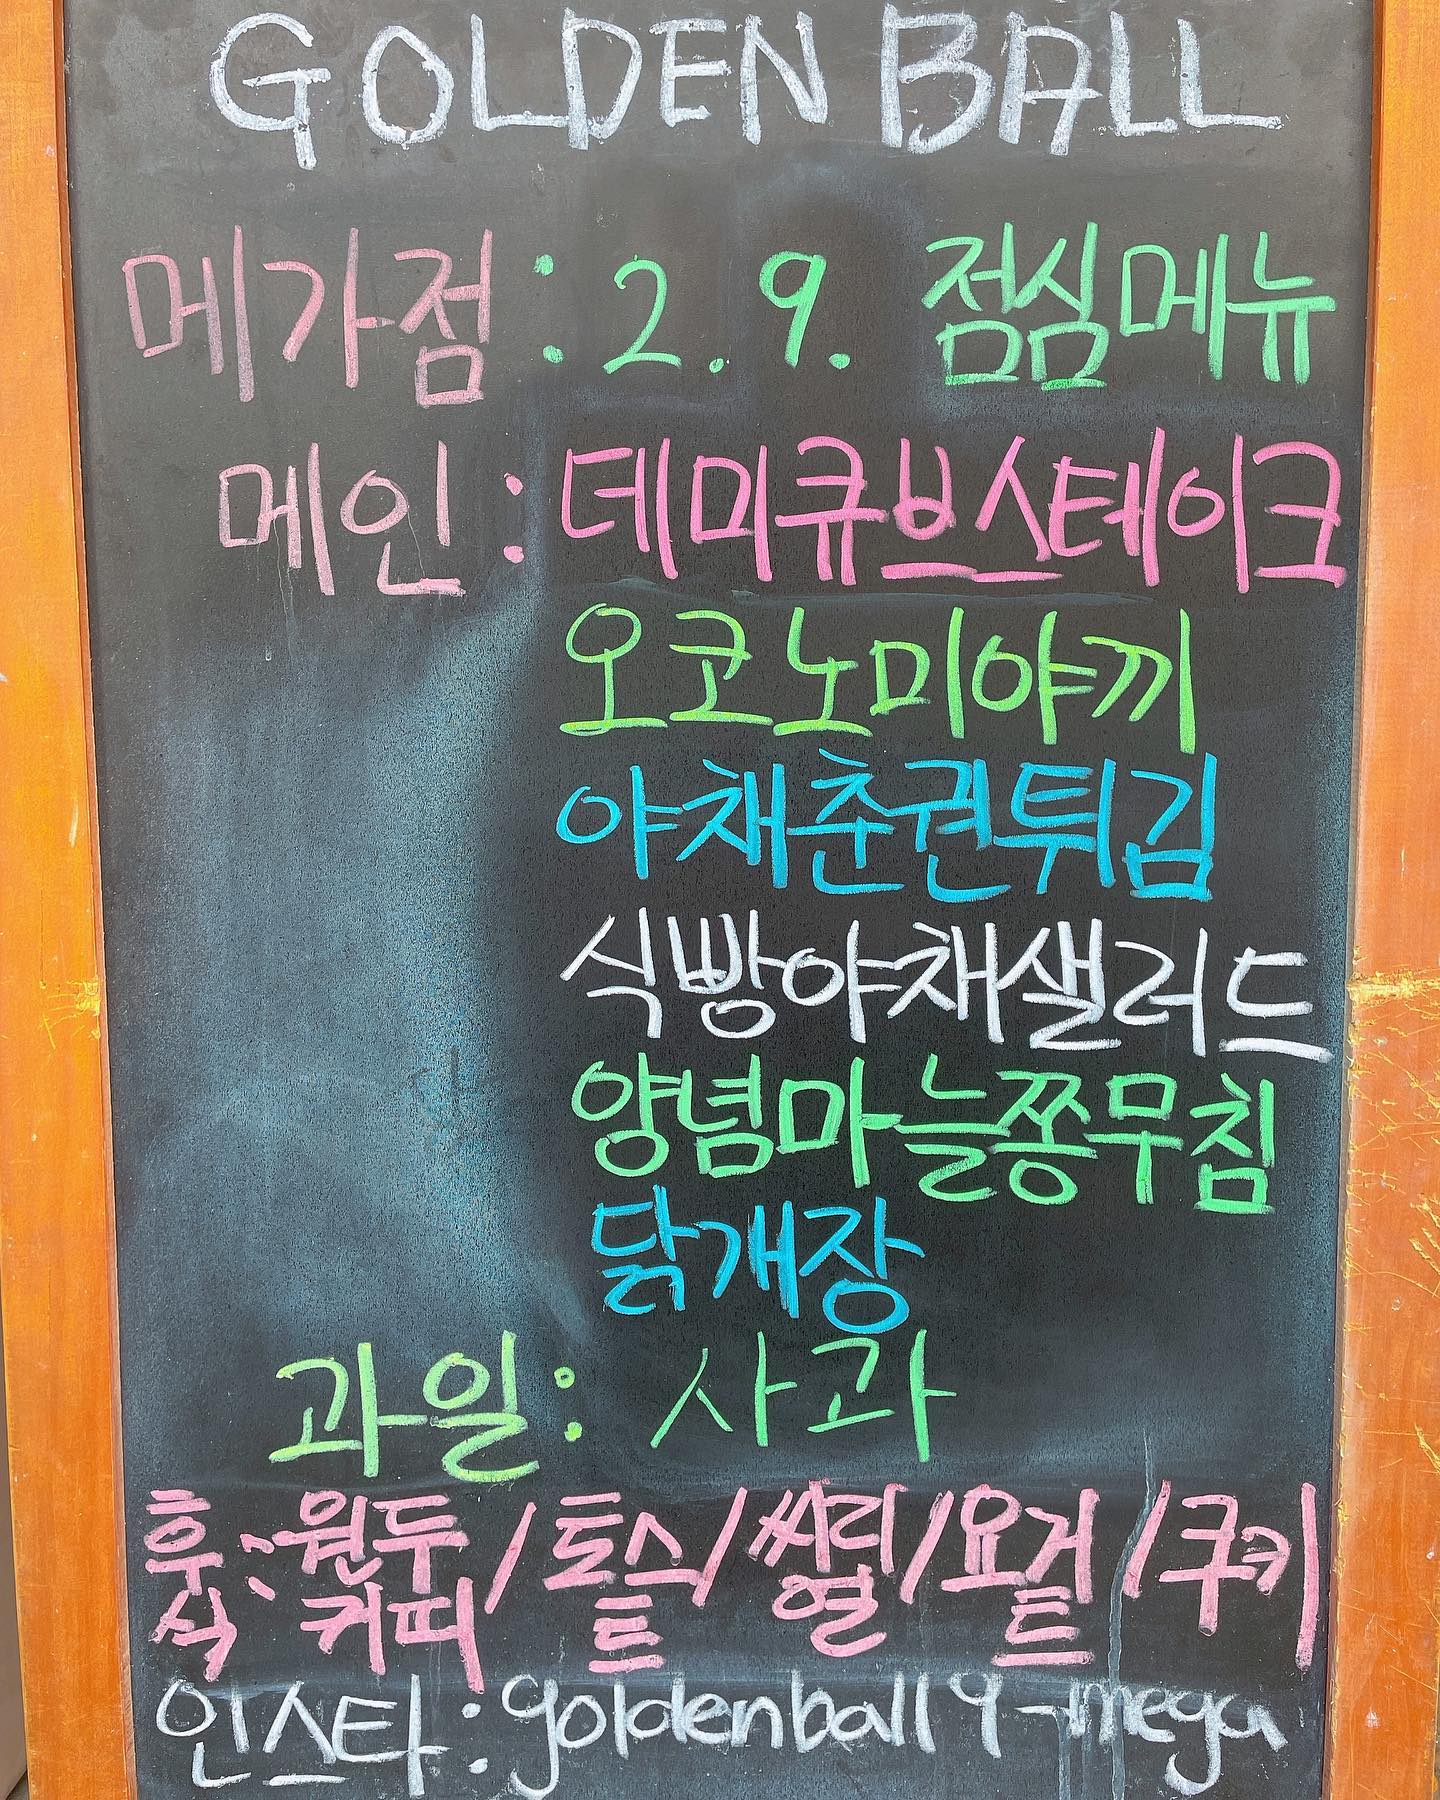 GOLDEN BALL
메가점 : 2. 9. 점심메뉴
메인 : 데미큐브스테이크
오코노미야끼
야채춘권튀김
식빵야채샐러드
양념마늘쫑무침
닭개장
과일 : 사과
후식 : 원두커피 / 토스트 / 씨리얼 / 요거트 / 쿠키
인스타 : goldenball9_mega